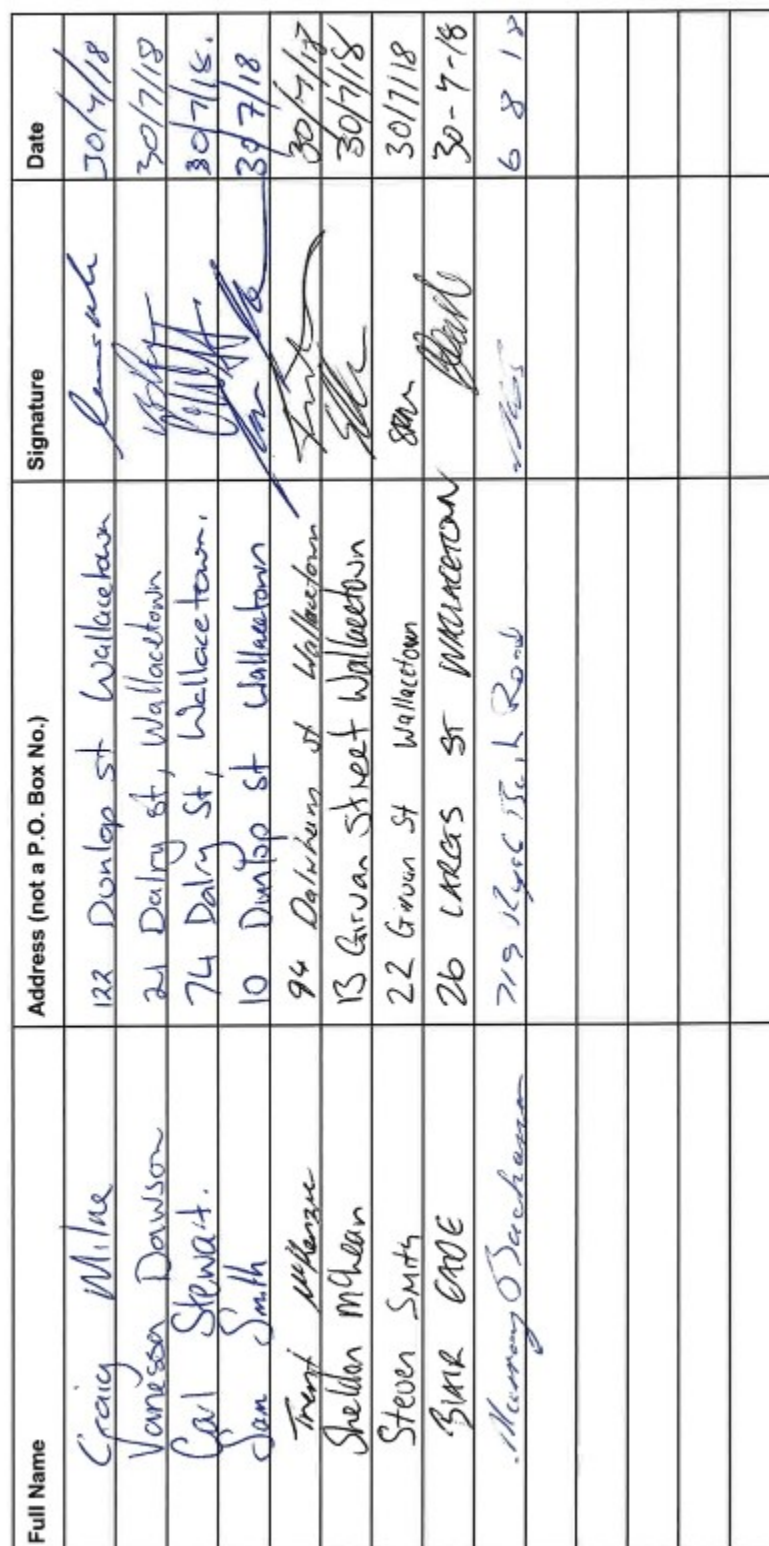 Full Name Address (not a P.O. Box No.) Signature Date
Craig Milne 122 Dunlop st Wallacetown 30/7/18
Vanessa Dawson 21 Dalry st, Wallacetown 30/7/18
Stewart. 74 Dalry St, Wallacetown. 30/7/18.
Sam Smith 10 Dunlop st Wallacetown 30/7/18
Trent McKenzie 94 st Wallacetown 30/7/18
Sheldon McLean 13 Girvan Street Wallacetown 30/7/18
Steven Smith 22 Girvan St Wallacetown 30/7/18
BLAIR 26 LARGS ST WALLACETOWN 30-7-18
Murray Road 6 8 18